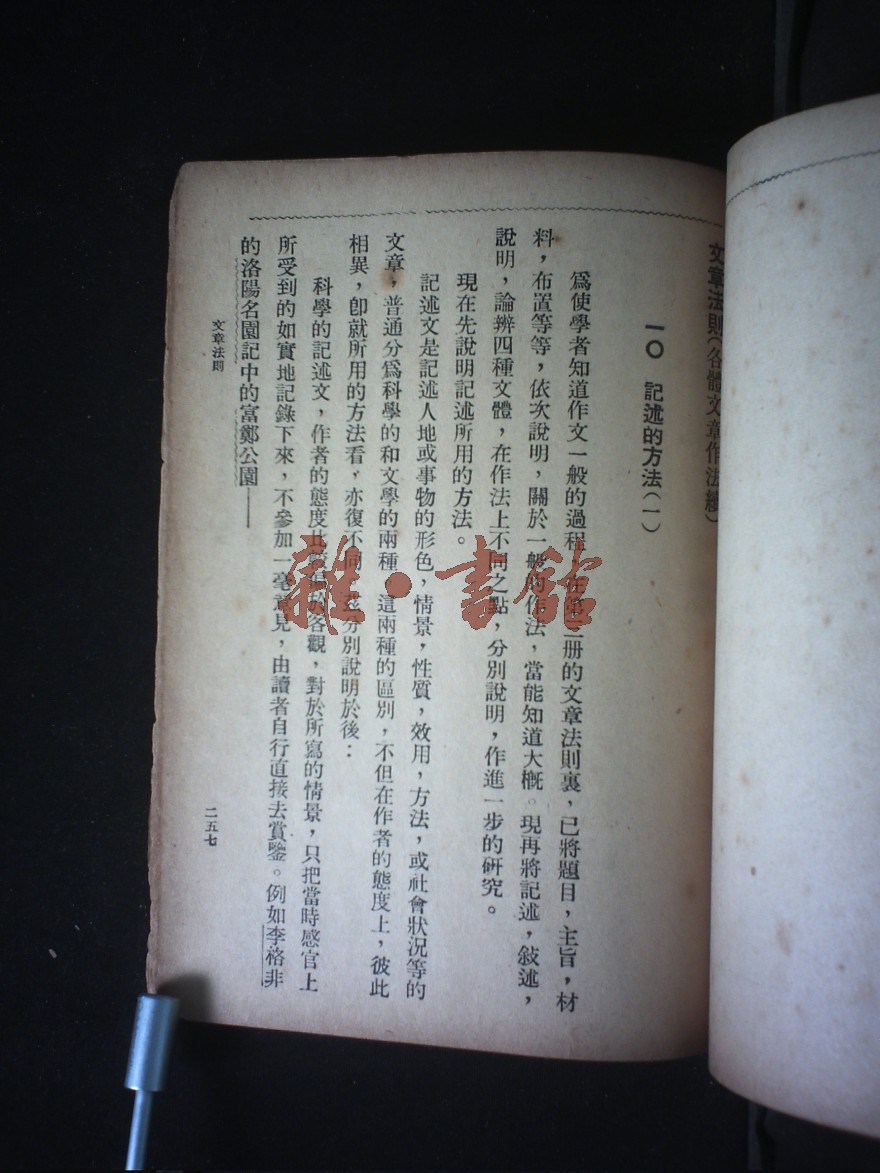 文章法則(各體文章作法續)
一〇 記述的方法(一)
爲使學者知道作文一般的過程,在第三册的文章法則裏,已將題目,主旨,材
料,布置等等,依次說明,關於一般的作法,當能知道大概。現再將記述,敍述,
說明,論辨四種文體,在作法上不同之點,分別說明,作進一步的研究。
現在先說明記述所用的方法。
記述文是記述人地或事物的形色,情景,性質,效用,方法,或社會狀況等的
文章,普通分爲科學的和文學的兩種 這兩種的區別,不但在作者的態度上,彼此
相異,卽就所用的方法看,亦復不同 茲分別說明於後:
科學的記述文,作者的態度比較偏於客觀,對於所寫的情景,只把當時感官上
所受到的如實地記錄下來,不參加一毫意見,由讀者自行直接去賞鑒。例如李格非
的洛陽名園記中的富鄭公園——
文章法則
二五七
雜·書館